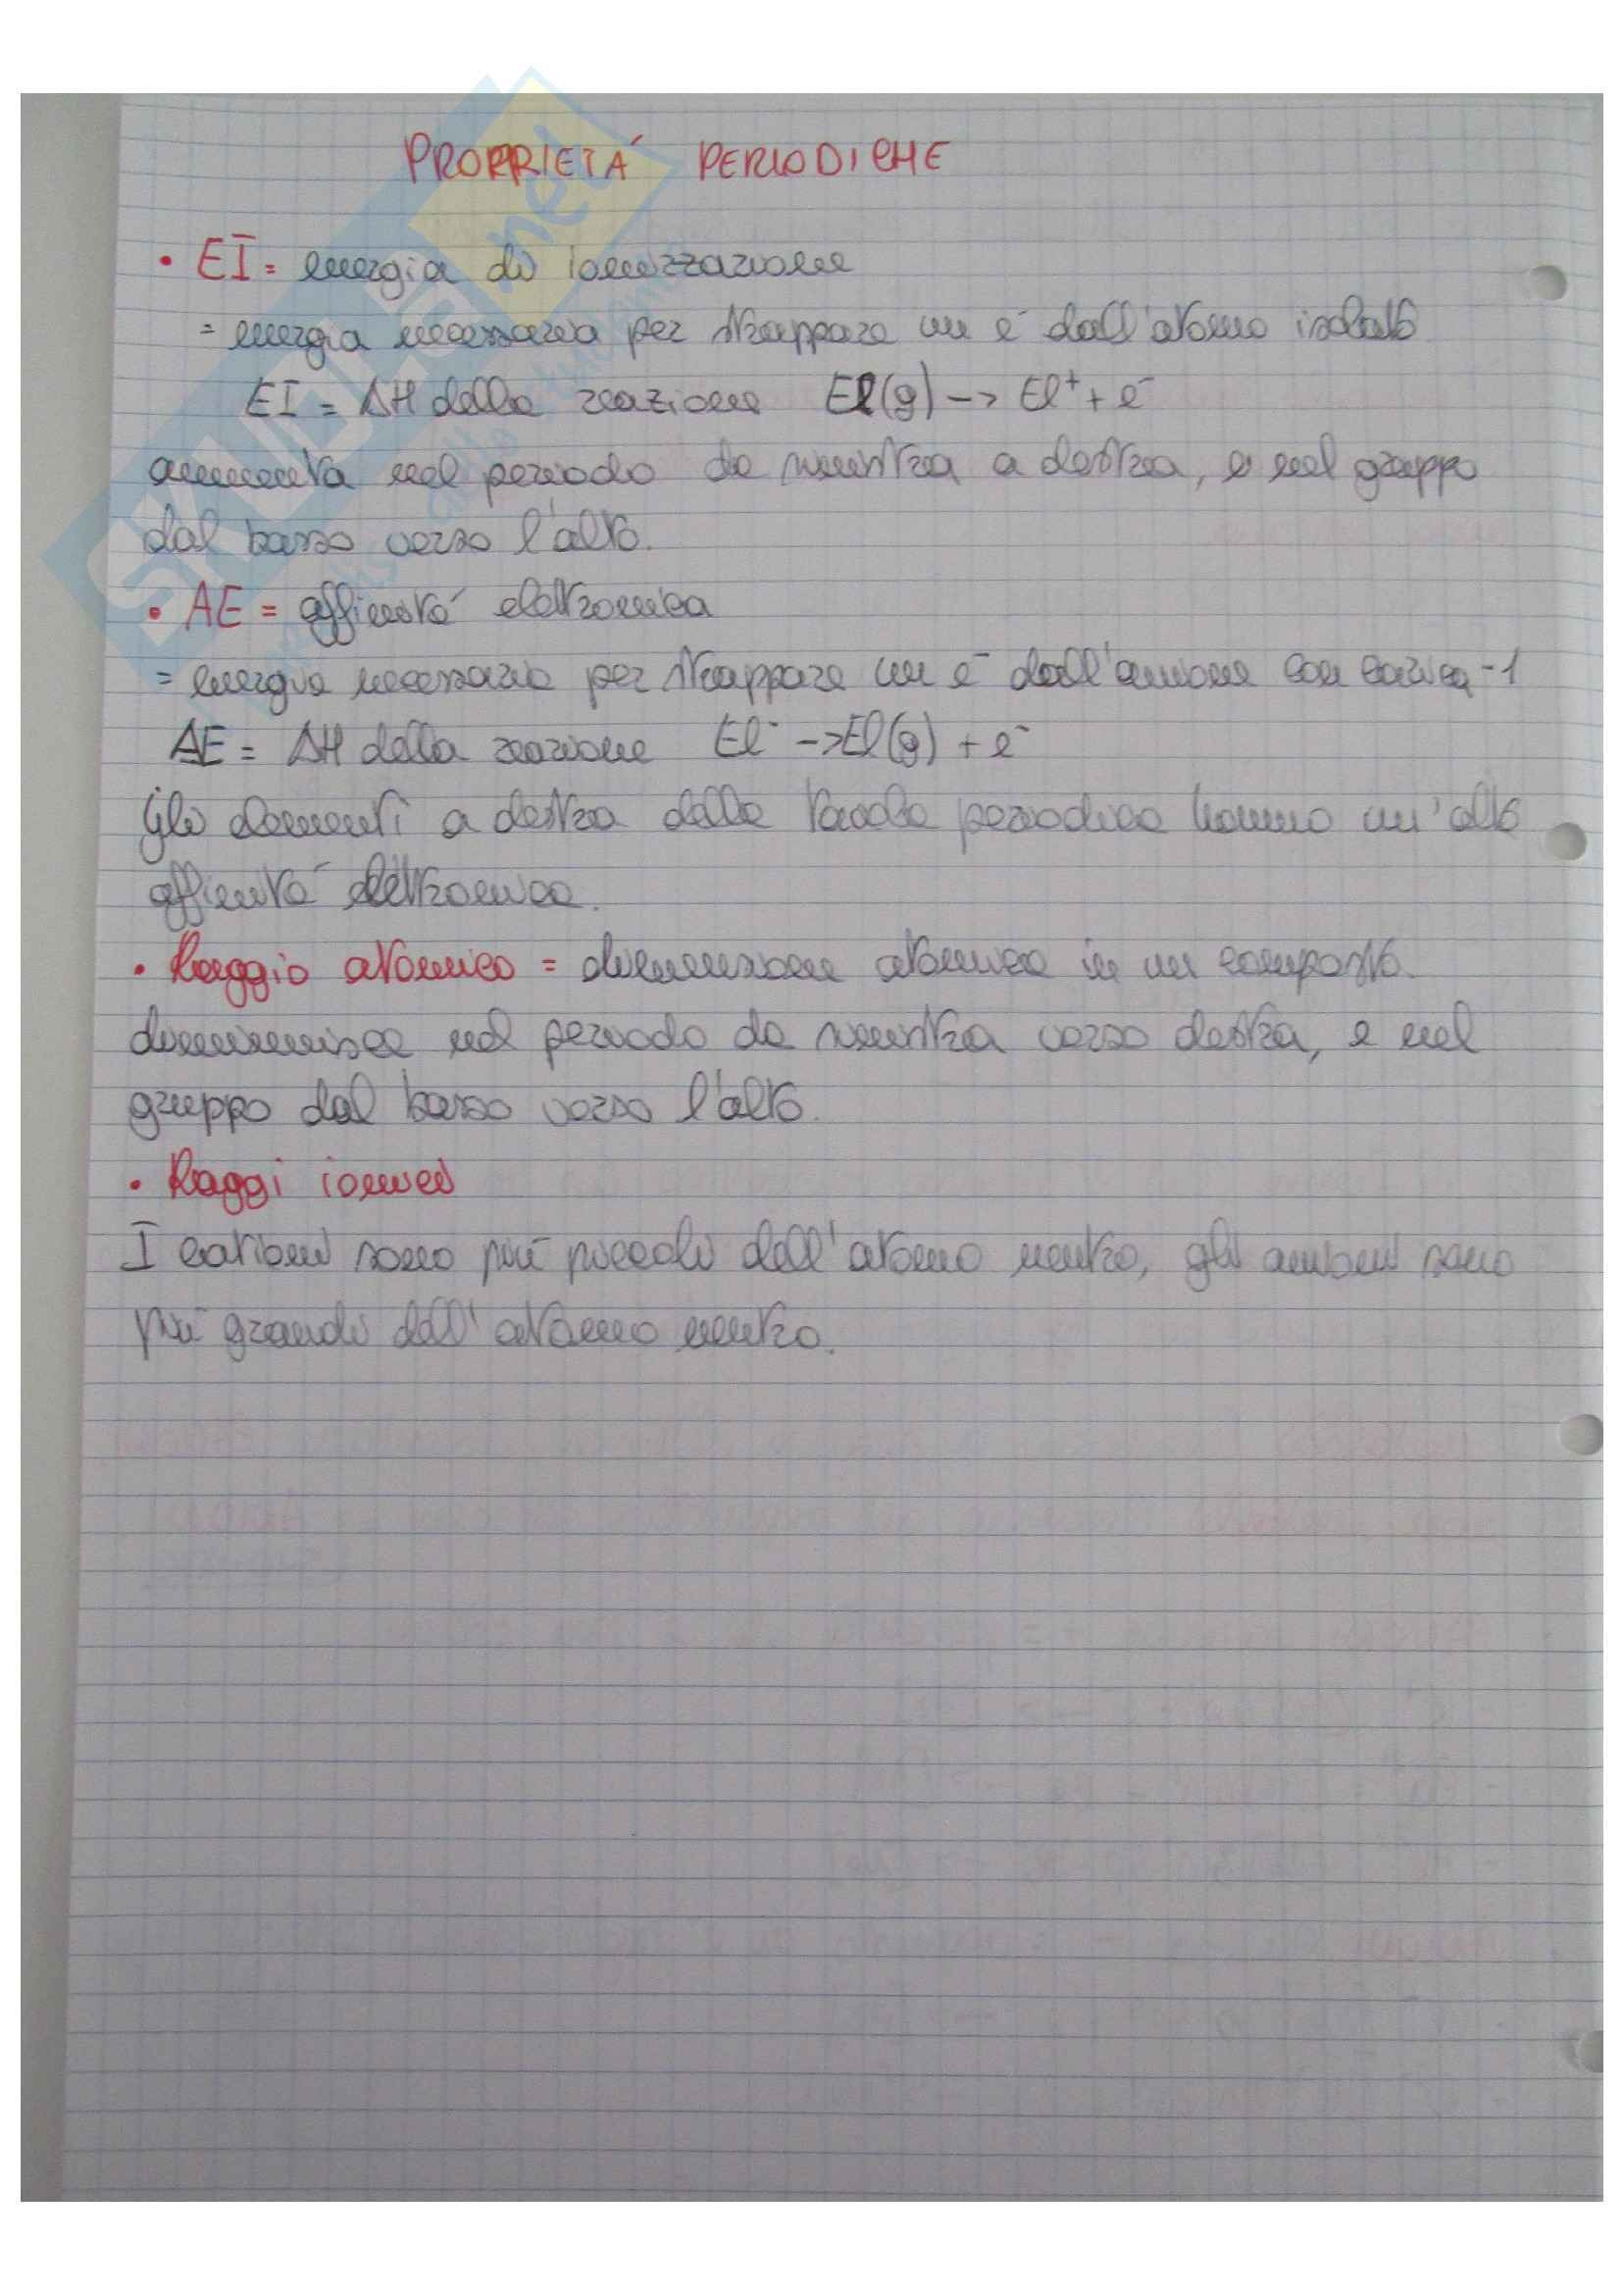 PROPRIETÁ PERIODICHE
• EI = energia di ionizzazione
= energia necessaria per strappare un e⁻ dall'atomo isolato
EI = ΔH della reazione El(g) -> El⁺ + e⁻
aumenta nel periodo da sinistra a destra, e nel gruppo
dal basso verso l'alto.
• AE = affinitá elettronica
= energia necessaria per strappare un e⁻ dall'anione con carica -1
AE = ΔH della reazione El⁻ -> El(g) + e⁻
Gli elementi a destra della tavola periodica hanno un'alta
affinitá elettronica.
• Raggio atomico = dimensione atomica in un composto.
diminuisce nel periodo da sinistra verso destra, e nel
gruppo dal basso verso l'alto.
• Raggi ionici
I cationi sono piú piccoli dell'atomo neutro, gli anioni sono
piú grandi dell'atomo neutro.
SKUOLA.net